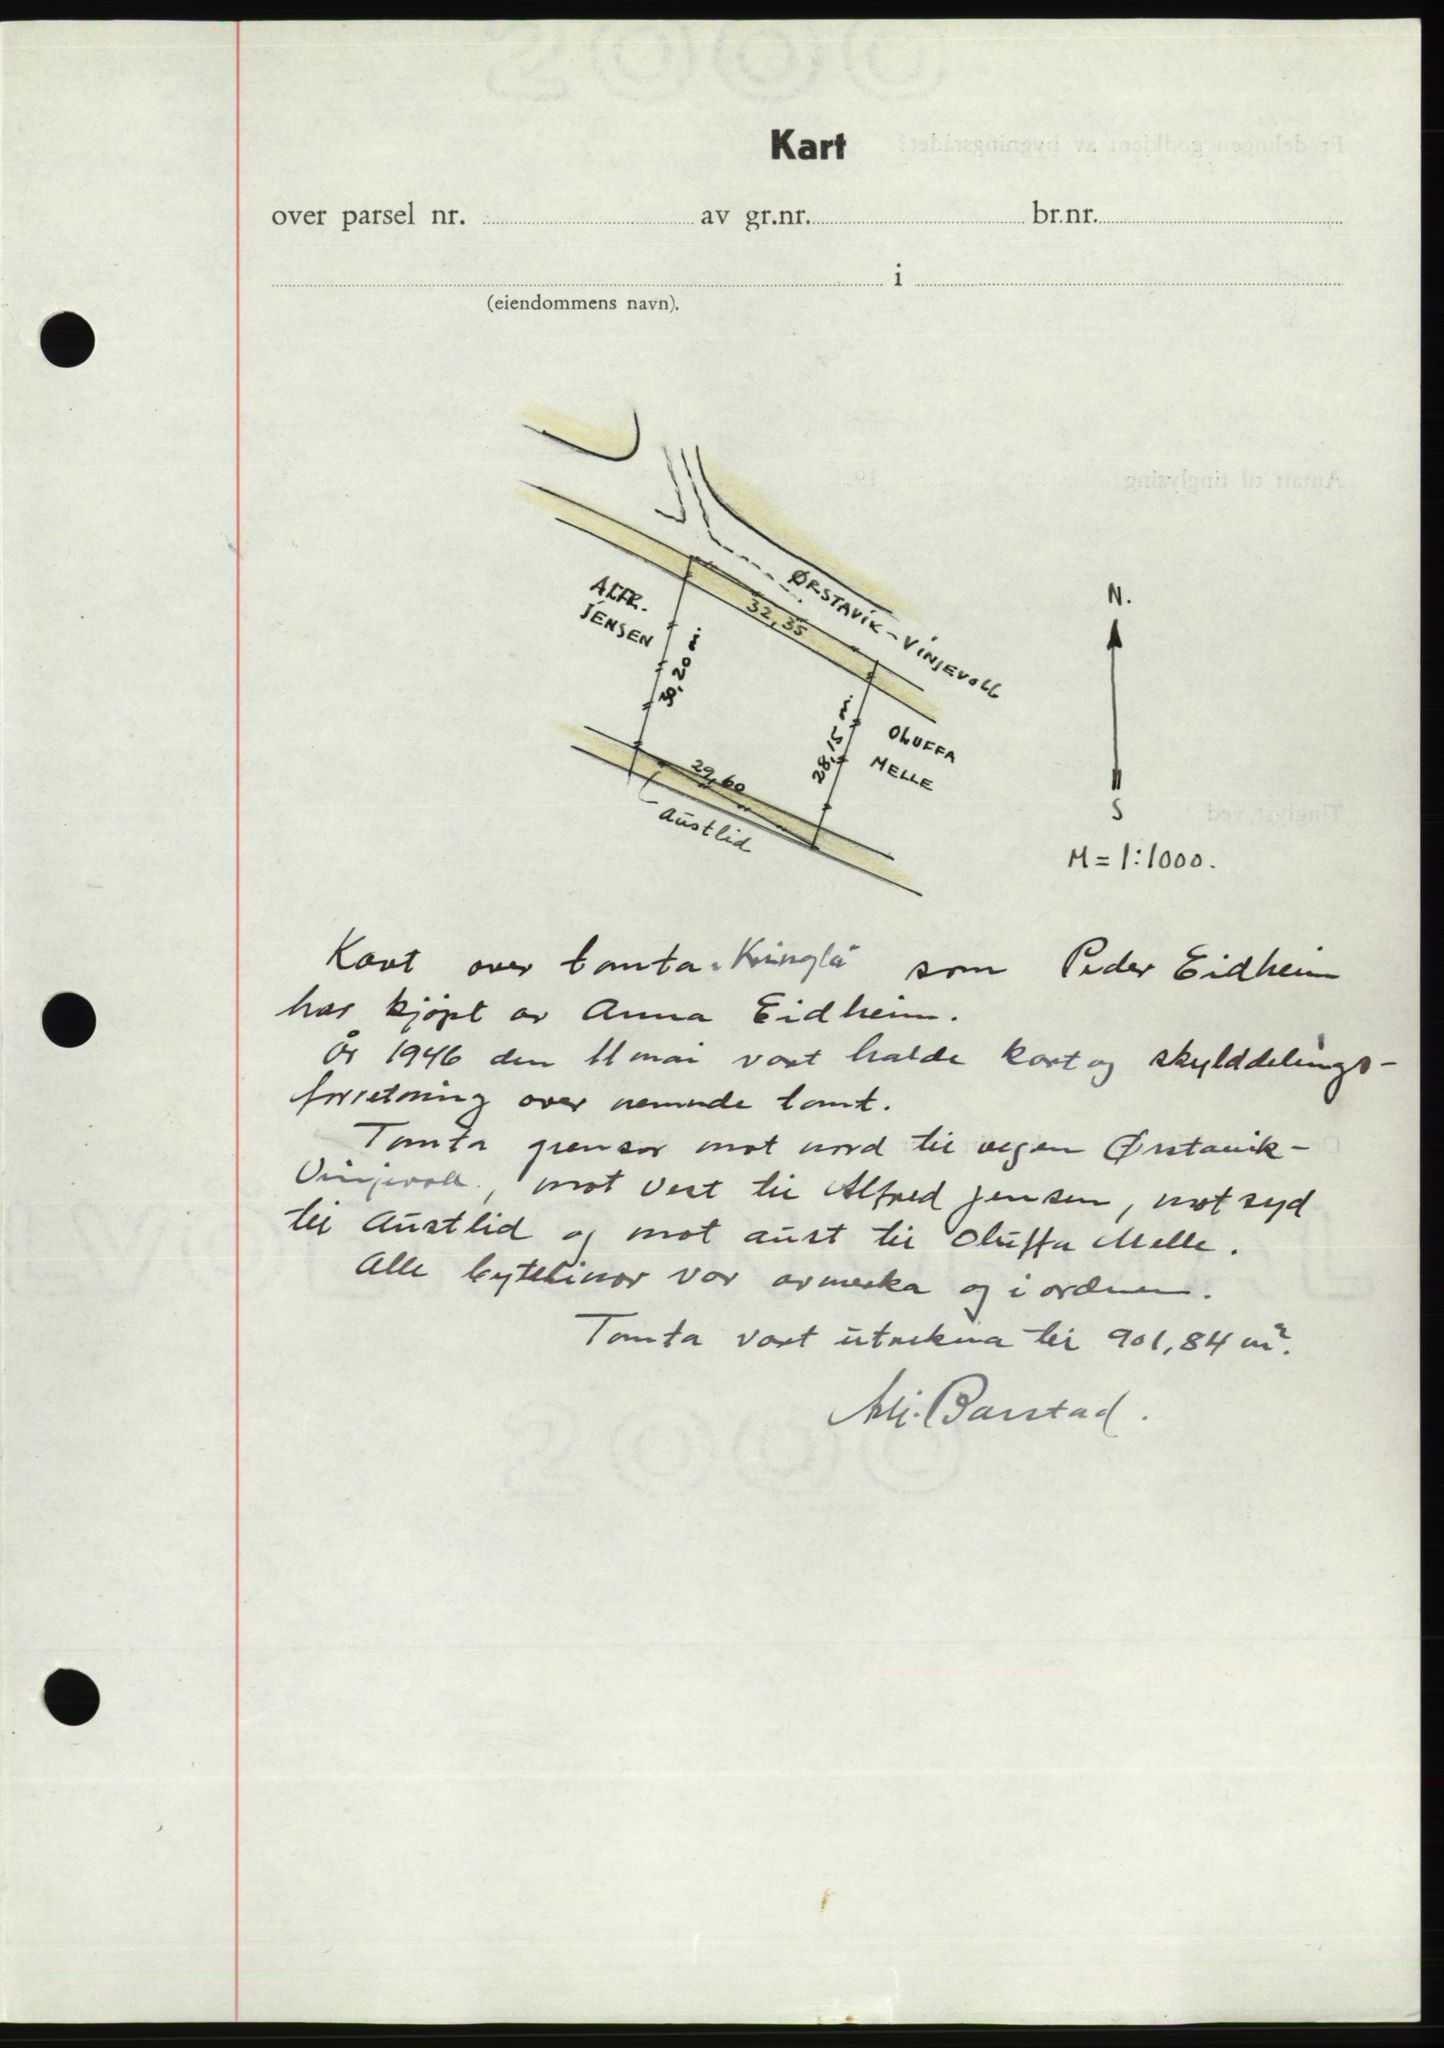 Kart
over parsel nr. av gr.nr. br.nr.
i
(eiendommens navn).
ALFR.
JENSEN
ØRSTAVIK - VINJEVOLL
32,35
30,20 m
28,15 m.
29,60
OLUFFA
MELLE
Austlid
N.
S
M = 1:1000.
Kart over tomta "Kringlå som Peder Eidheim
har kjøpt av Anna Eidheim.
År 1946 den 11 mai vart halde kart og skylddelings-
forretning over nemnde tomt.
Tomta grensar mot nord til vegen Ørstavik-
Vinjevoll, mot vest til Alfred Jensen, mot syd
til Austlid og mot aust til Oluffa Melle.
Alle bytelinor var avmerka og i orden.
Tomta vart utrekna til 901,84 m².
Barstad.